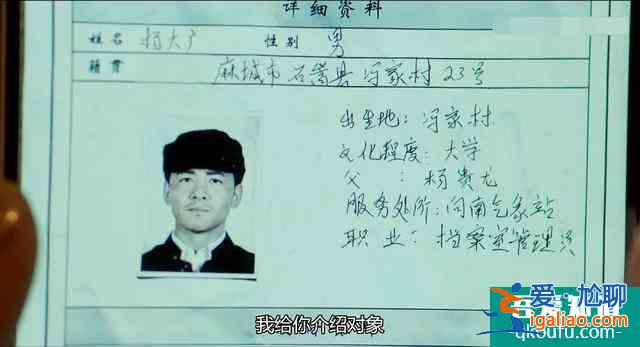 详细资料
姓名 杨大广 性别 男
籍贯 麻城市石嵩县冯家村23号
出生地：冯家村
文化程度：大学
父：杨贵龙
服务处所：向南气象站
职业：档案室管理员
我给你介绍对象
爱·尬聊
igaliao.com
qk5ufu.com